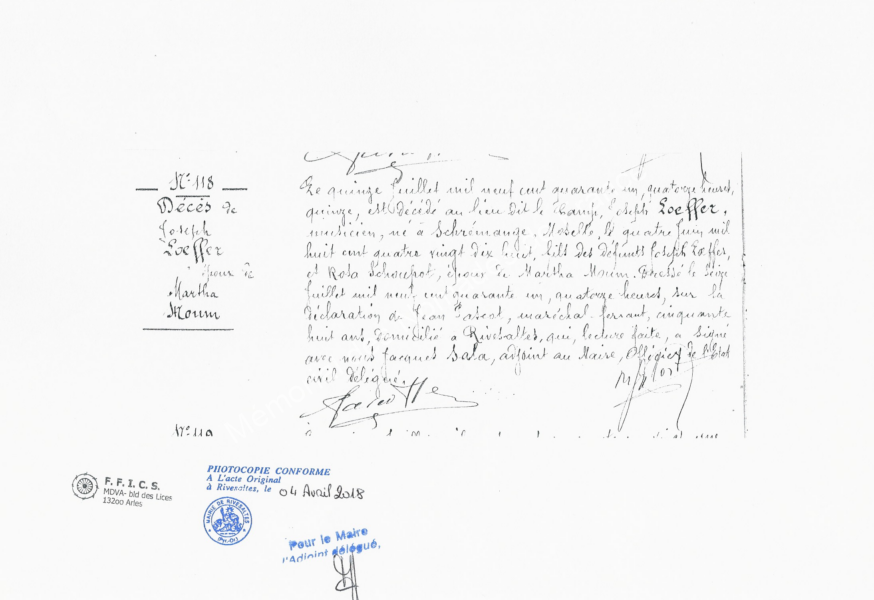 N° 118
Décès de
Joseph
Loeffer
époux de
Martha
Moum
Le quinze Juillet mil neuf cent quarante un, quatorze heures,
quinze, est décédé au lieu dit le Camp, Joseph Loeffer,
musicien, né à Schrémange, Moselle, le quatre Juin mil
huit cent quatre vingt dix huit, fils des défunts Joseph Loeffer,
et Rosa, époux de Martha Moum. Dressé le seize
Juillet mil neuf cent quarante un, quatorze heures, sur la
déclaration de Jean Pascot, maréchal-ferrant, cinquante
huit ans, domicilié à Rivesaltes, qui, lecture faite, a signé
avec nous Jacques Sala, adjoint au Maire, Officier de l'Etat
civil délégué.
N° 119
F. F. I. C. S.
MDVA- bld des Lices
13200 Arles
PHOTOCOPIE CONFORME
A L'acte Original
à Rivesaltes, le 04 Avril 2018
MAIRIE DE RIVESALTES
(Pyr.-Or.)
Pour le Maire
l'Adjoint délégué,